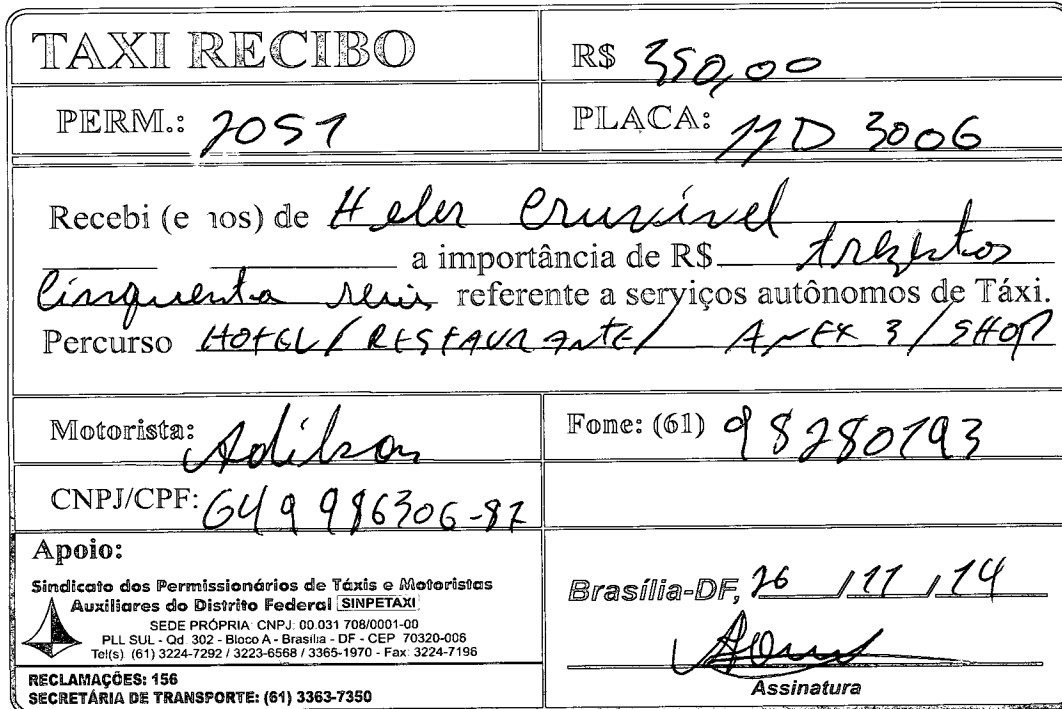 TAXI RECIBO
R$ 350,00
PERM.: 2051
PLACA: JJD 3006
Recebi (e nos) de Heler Cruvinel
a importância de R$ trezentos
cinquenta reais referente a serviços autônomos de Táxi.
Percurso HOTEL / RESTAURANTE / ANEX 3 / SHOP
Motorista: Adilson
Fone: (61) 98280193
CNPJ/CPF: 649 986306-87
Apoio:
Sindicato dos Permissionários de Táxis e Motoristas
Auxiliares do Distrito Federal SINPETAXI
SEDE PRÓPRIA CNPJ: 00.031 708/0001-00
PLL SUL - Qd 302 - Bloco A - Brasília - DF - CEP 70320-006
Tel(s) (61) 3224-7292 / 3223-6568 / 3365-1970 - Fax: 3224-7196
RECLAMAÇÕES: 156
SECRETÁRIA DE TRANSPORTE: (61) 3363-7350
Brasília-DF, 26 / 11 / 14
Assinatura